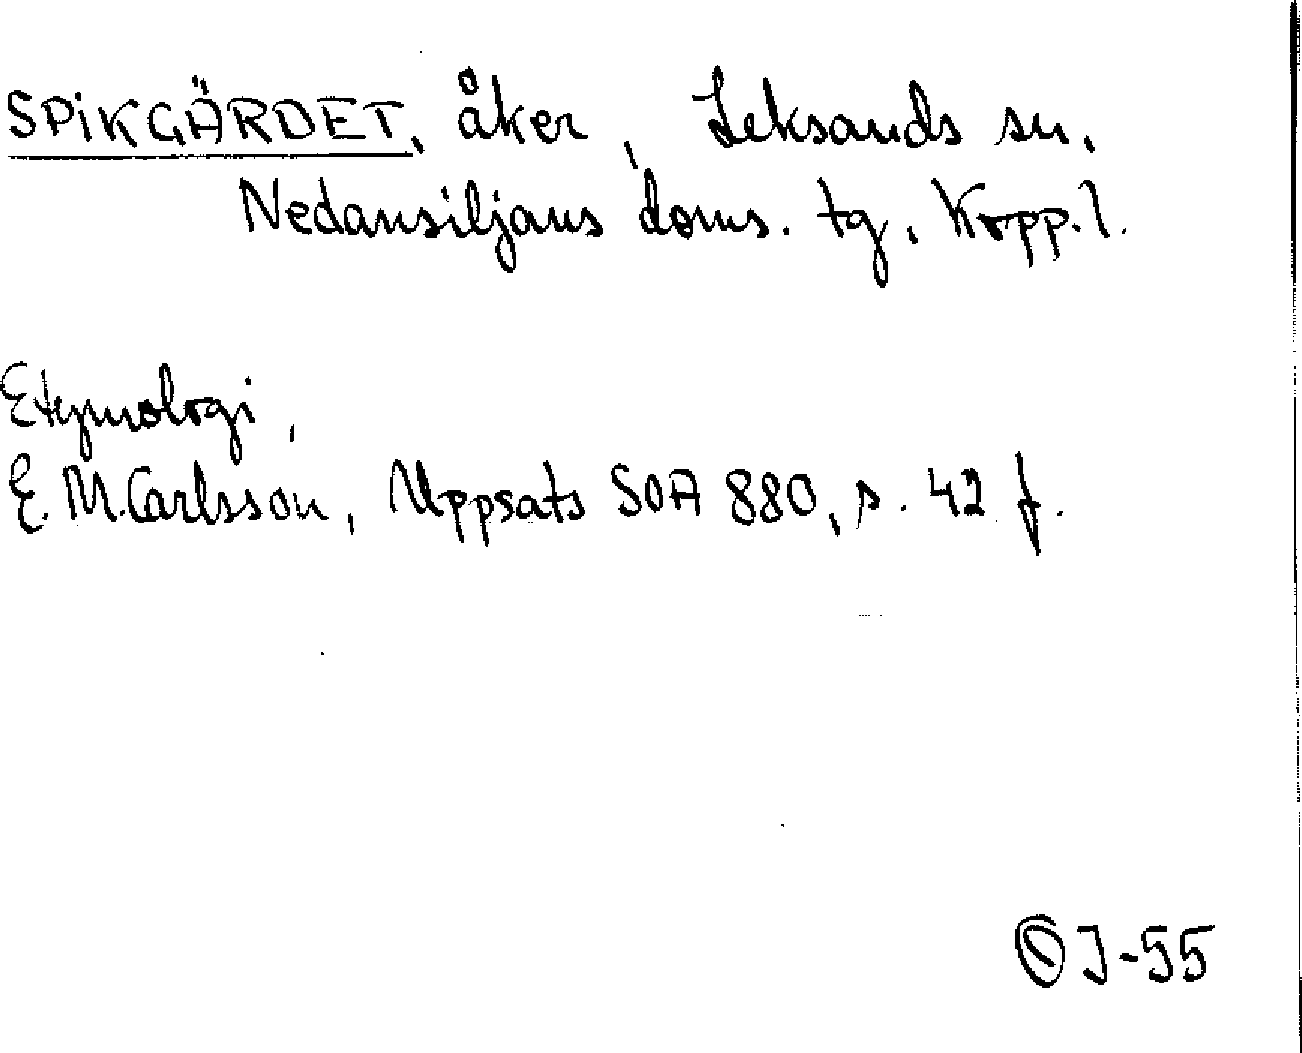 SPIKGÄRDET, åker, Leksands sn.
Nedansiljans doms. tg, Kopp. l.
Etymologi,
E. M. Carlsson, Uppsats SOA 880, s. 42 f.
J-55